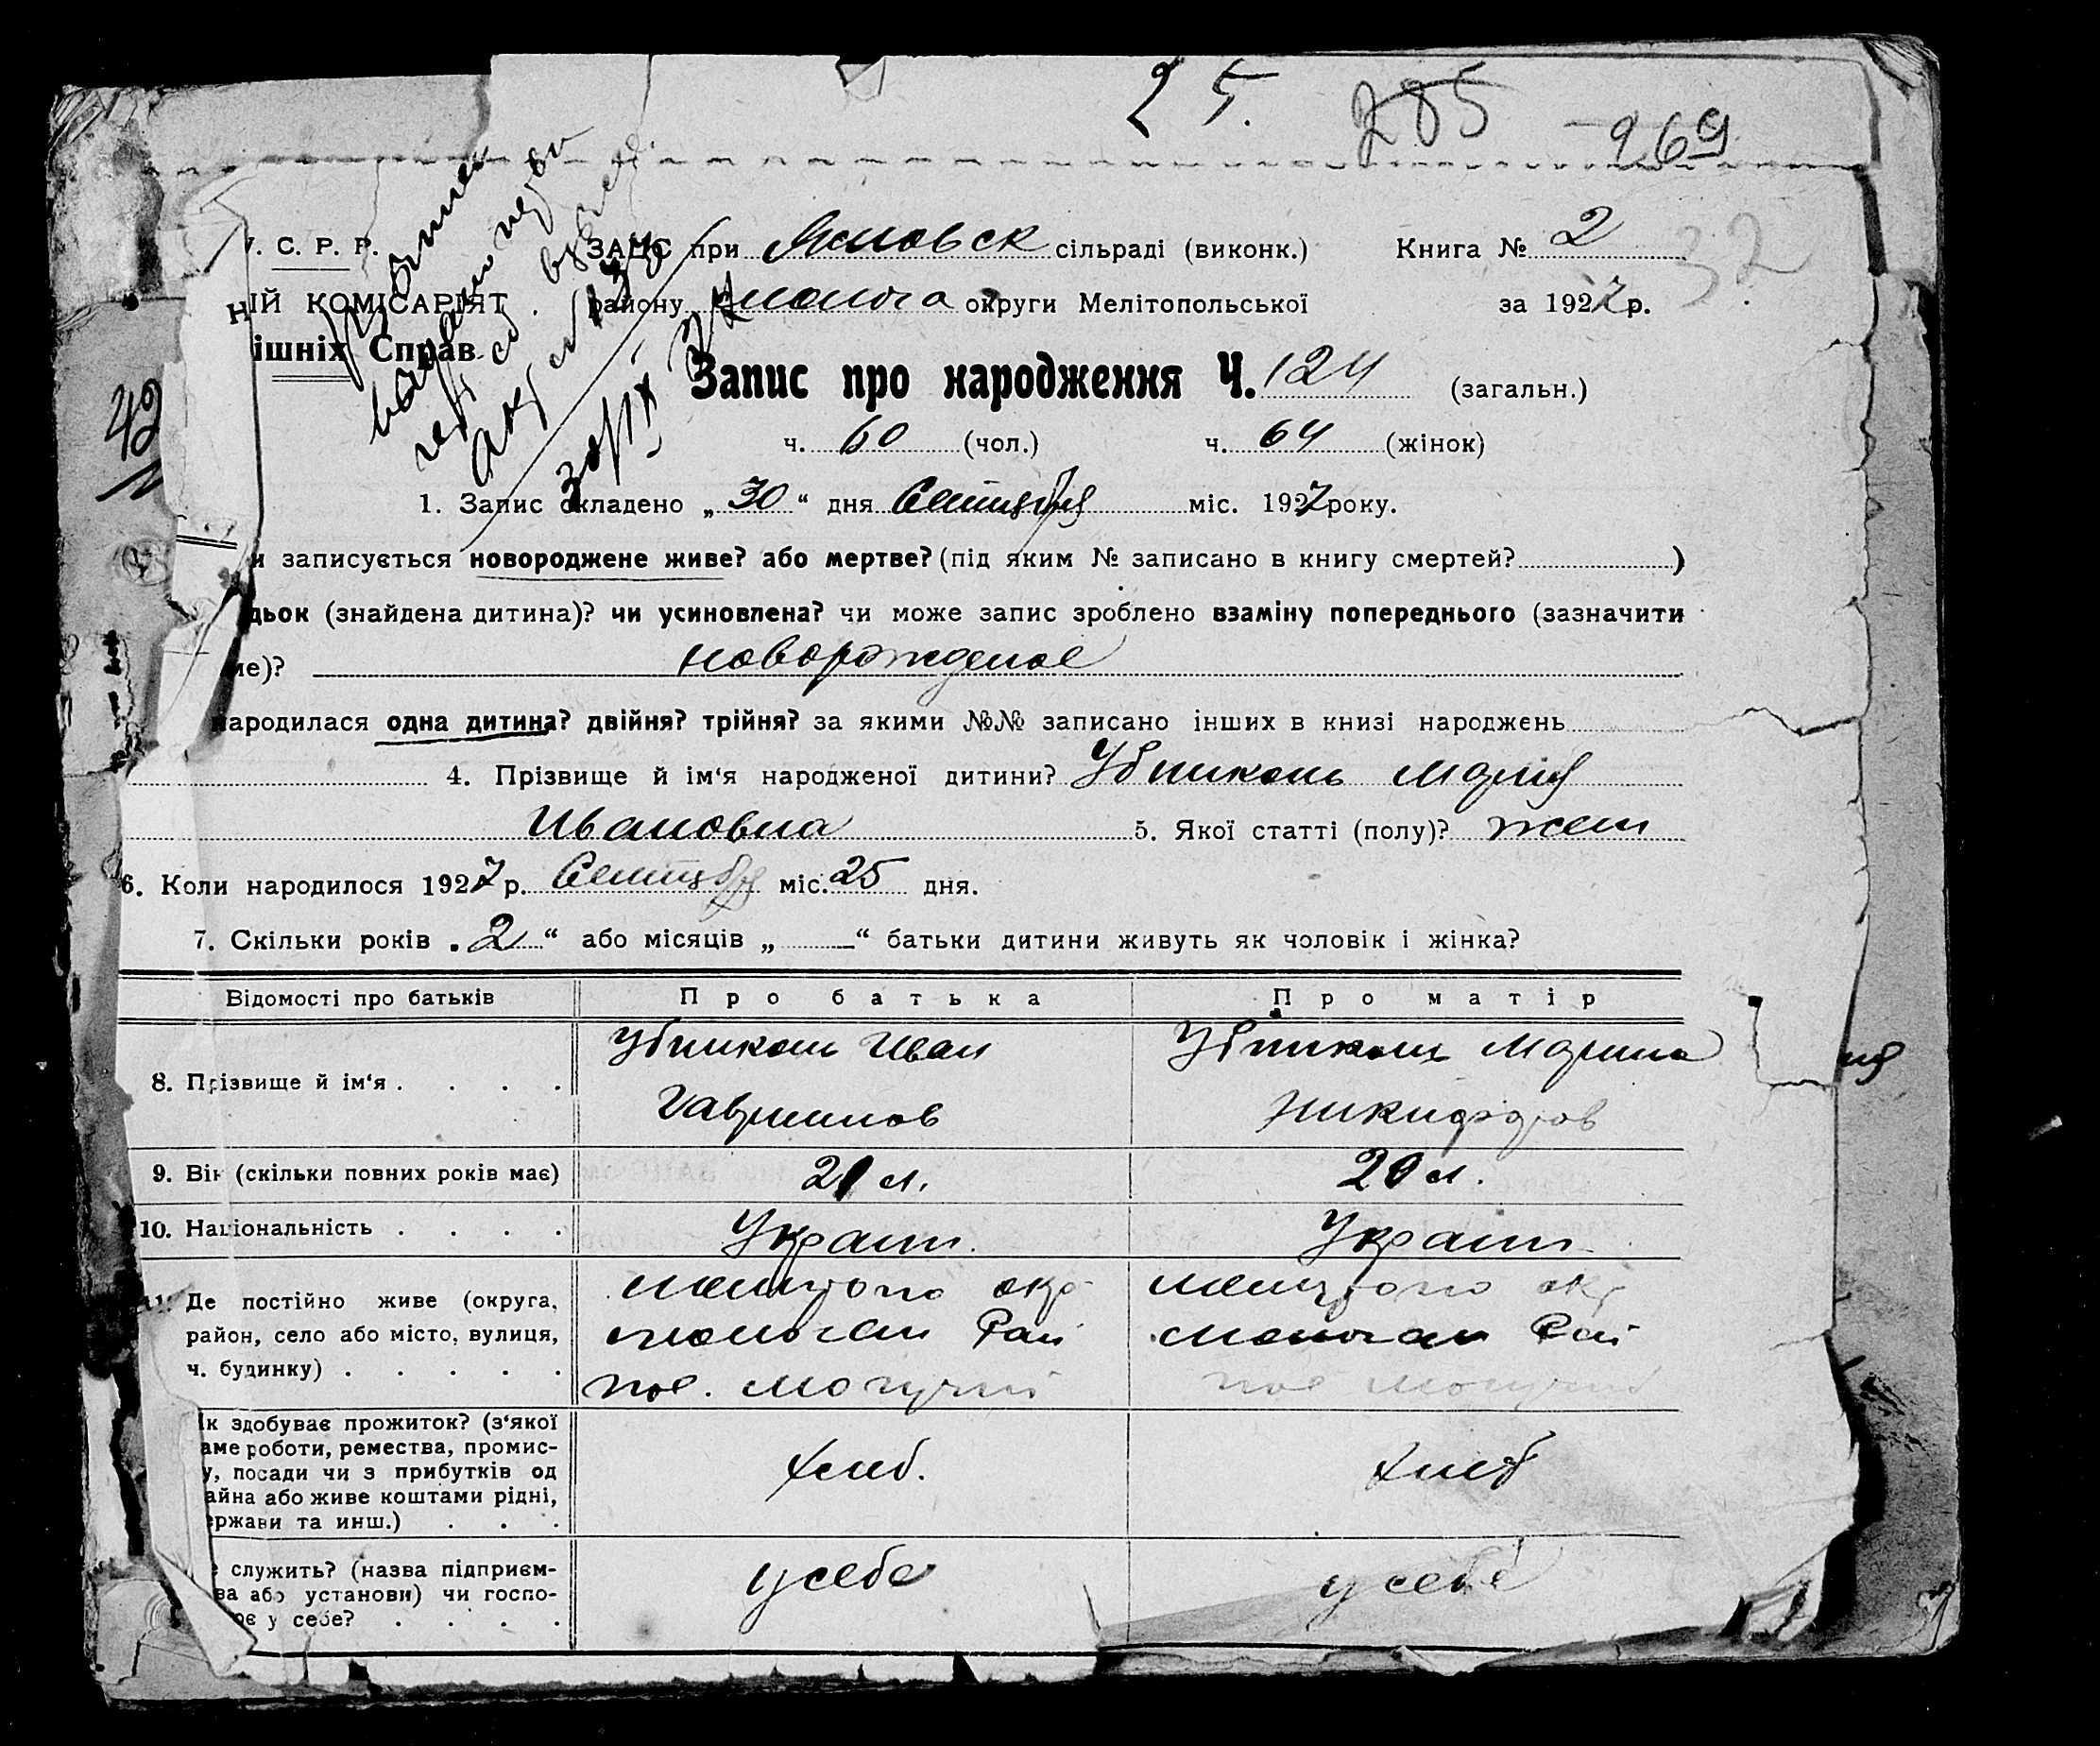 25.
285
269
32
У. С. Р. Р.
ЗАЦС при сільраді (виконк.) Книга № 2
НІЙ КОМІСАРІЯТ району округи Мелітопольської за 1927 р.
ішніх Справ
Запис про народження Ч. 124 (загальн.)
ч. 60 (чол.) ч. 64 (жінок)
42
1. Запис складено „30“ дня Сентября міс. 1927 року.
и записується новороджене живе? або мертве? (під яким № записано в книгу смертей? )
дьок (знайдена дитина)? чи усиновлена? чи може запис зроблено взаміну попереднього (зазначити
ме)? новорожденое
народилася одна дитина? двійня? трійня? за якими №№ записано інших в книзі народжень
4. Прізвище й ім‘я народженої дитини? Мария
Ивановна 5. Якої статті (полу)? жен
6. Коли народилося 1927 р. Сентября міс. 25 дня.
7. Скільки років „2“ або місяців „ “ батьки дитини живуть як чоловік і жінка?
Відомості про батьків Про батька Про матір
Иван Марина
8. Прізвище й ім‘я . . . .
Гаврилов Никифоров
9. Він (скільки повних років має) 21 л. 20 л.
10. Національність . . . . Украин. Украин.
11. Де постійно живе (округа, район, село або місто, вулиця, ч. будинку) . . . . .
Мелитопо окр Мелитопо окр
Рай Рай
пос. Могучий пос Могучий
Як здобуває прожиток? (з‘якої
аме роботи, ремества, промис-
у, посади чи з прибутків од
айна або живе коштами рідні,
ержави та инш.) . . .
хлеб. хлеб
е служить? (назва підприєм-
ва або установи) чи госпо-
ює у себе? . . . .
у себе у себе